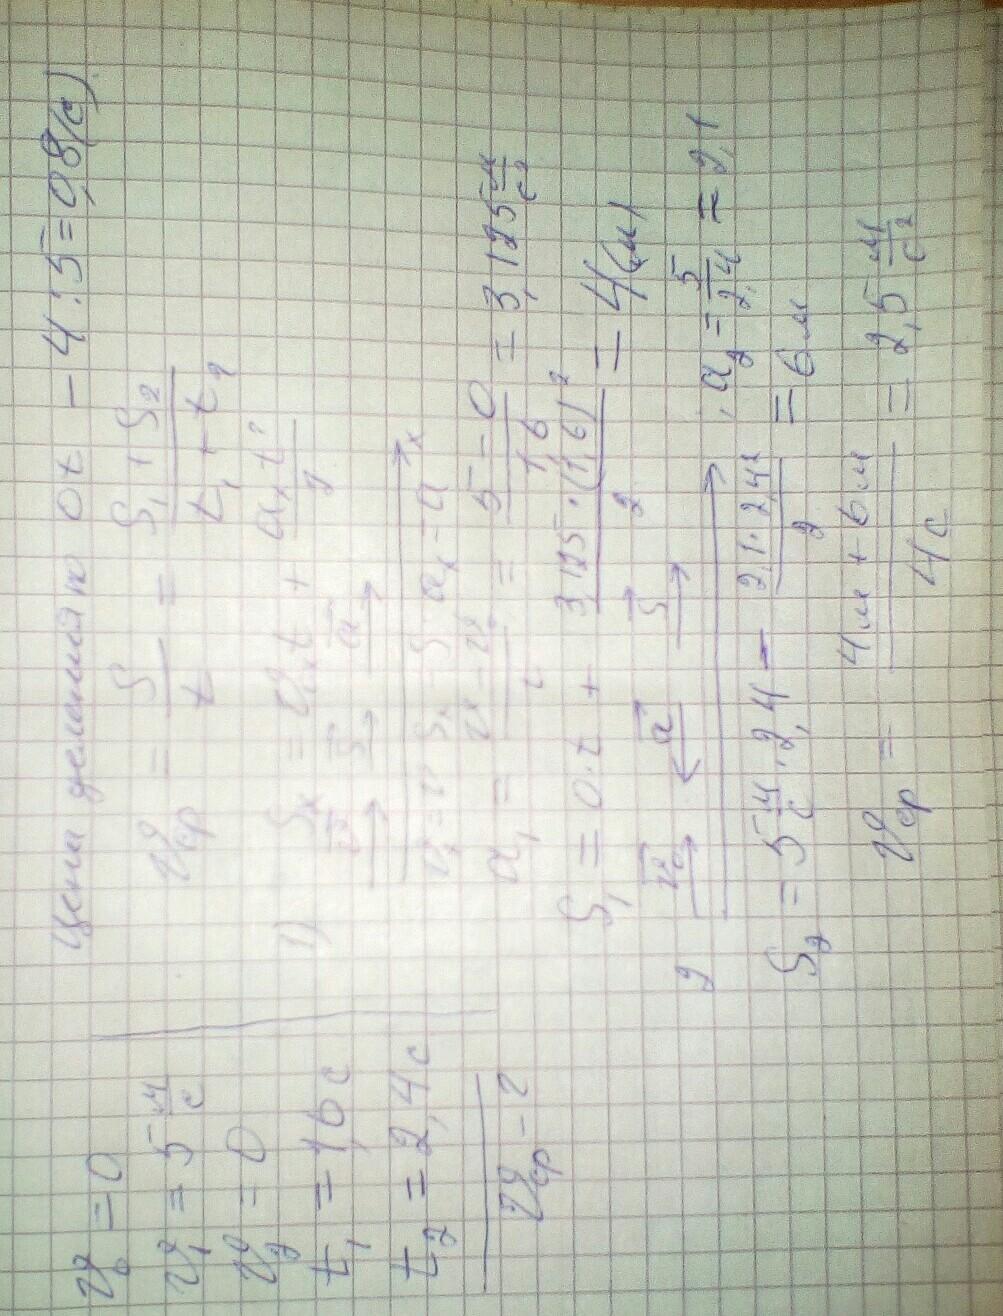 v₀ = 0
v₁ = 5 м/с
v₂ = 0
t₁ = 1,6 с
t₂ = 2,4 с
vср - ?
Цена деления по Ot - 4 : 5 = 0,8 (с)
vср = S/t = (S₁ + S₂)/(t₁ + t₂)
1) Sₓ = v₀ₓt + aₓt²/2
v⃗ S⃗ a⃗
aₓ = a x
a₁ = (v - v₀)/t = (5 - 0)/1,6 = 3,125 м/с²
S₁ = 0·t + 3,125·(1,6)²/2 = 4 (м)
2 v⃗₀ a⃗ S⃗ , a₂ = 5/2,4 = 2,1
S₂ = 5 м/с · 2,4 - 2,1·2,4²/2 = 6 м
vср = (4 м + 6 м)/4 с = 2,5 м/с²